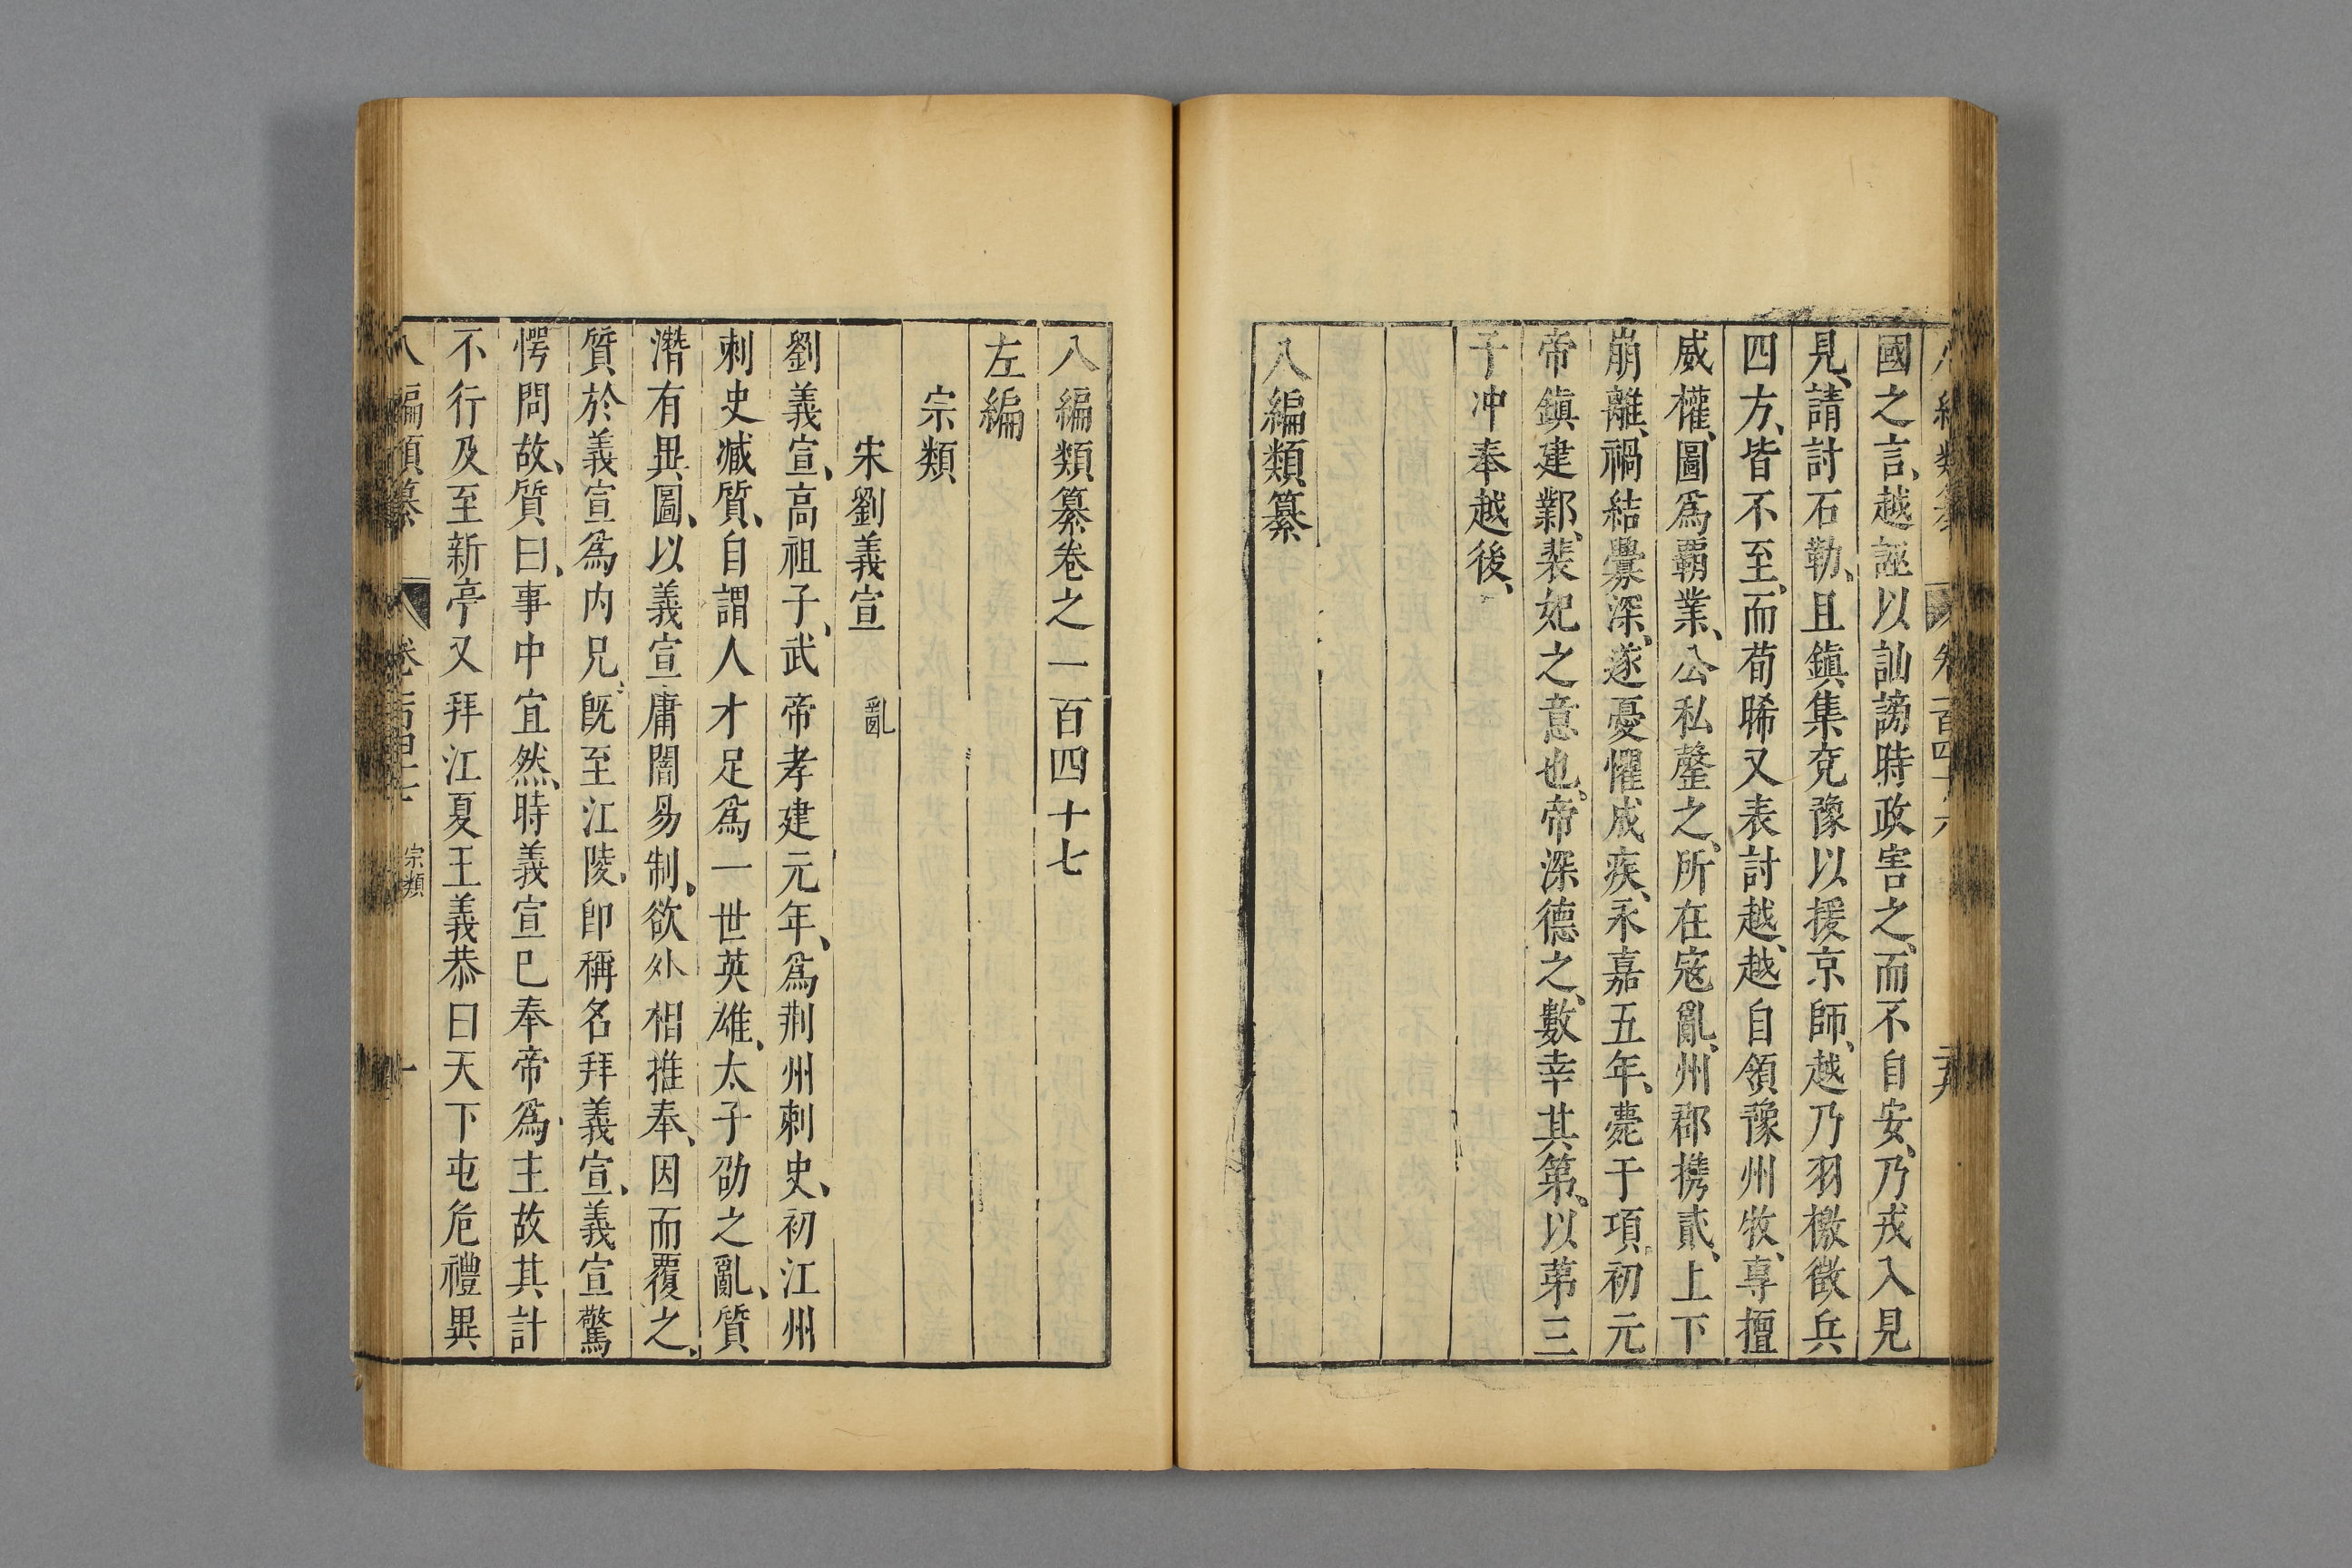 八編類纂 卷一百四十六 二十九
國之言越誣以訕謗時政害之而不自安乃戎入見
見請討石勒且鎮集兗豫以援京師越乃羽檄徵兵
四方皆不至而荀晞又表討越越自領豫州牧專擅
威權圖爲覇業公私罄之所在寇亂州郡携貳上下
崩離禍結釁深遂憂懼成疾永嘉五年薨于項初元
帝鎮建鄴裴妃之意也帝深德之數幸其第以第三
子冲奉越後
八編類纂
八編類纂卷之一百四十七
左編
宗類
宋劉義宣 亂
劉義宣高祖子武帝孝建元年爲荆州刺史初江州
刺史臧質自謂人才足爲一世英雄太子劭之亂質
潛有異圖以義宣庸闇易制欲外相推奉因而覆之
質於義宣爲内兄旣至江陵卽稱名拜義宣義宣驚
愕問故質曰事中宜然時義宣已奉帝爲主故其計
不行及至新亭又拜江夏王義恭曰天下屯危禮異
八編類纂 卷一百四十七 宗類 一